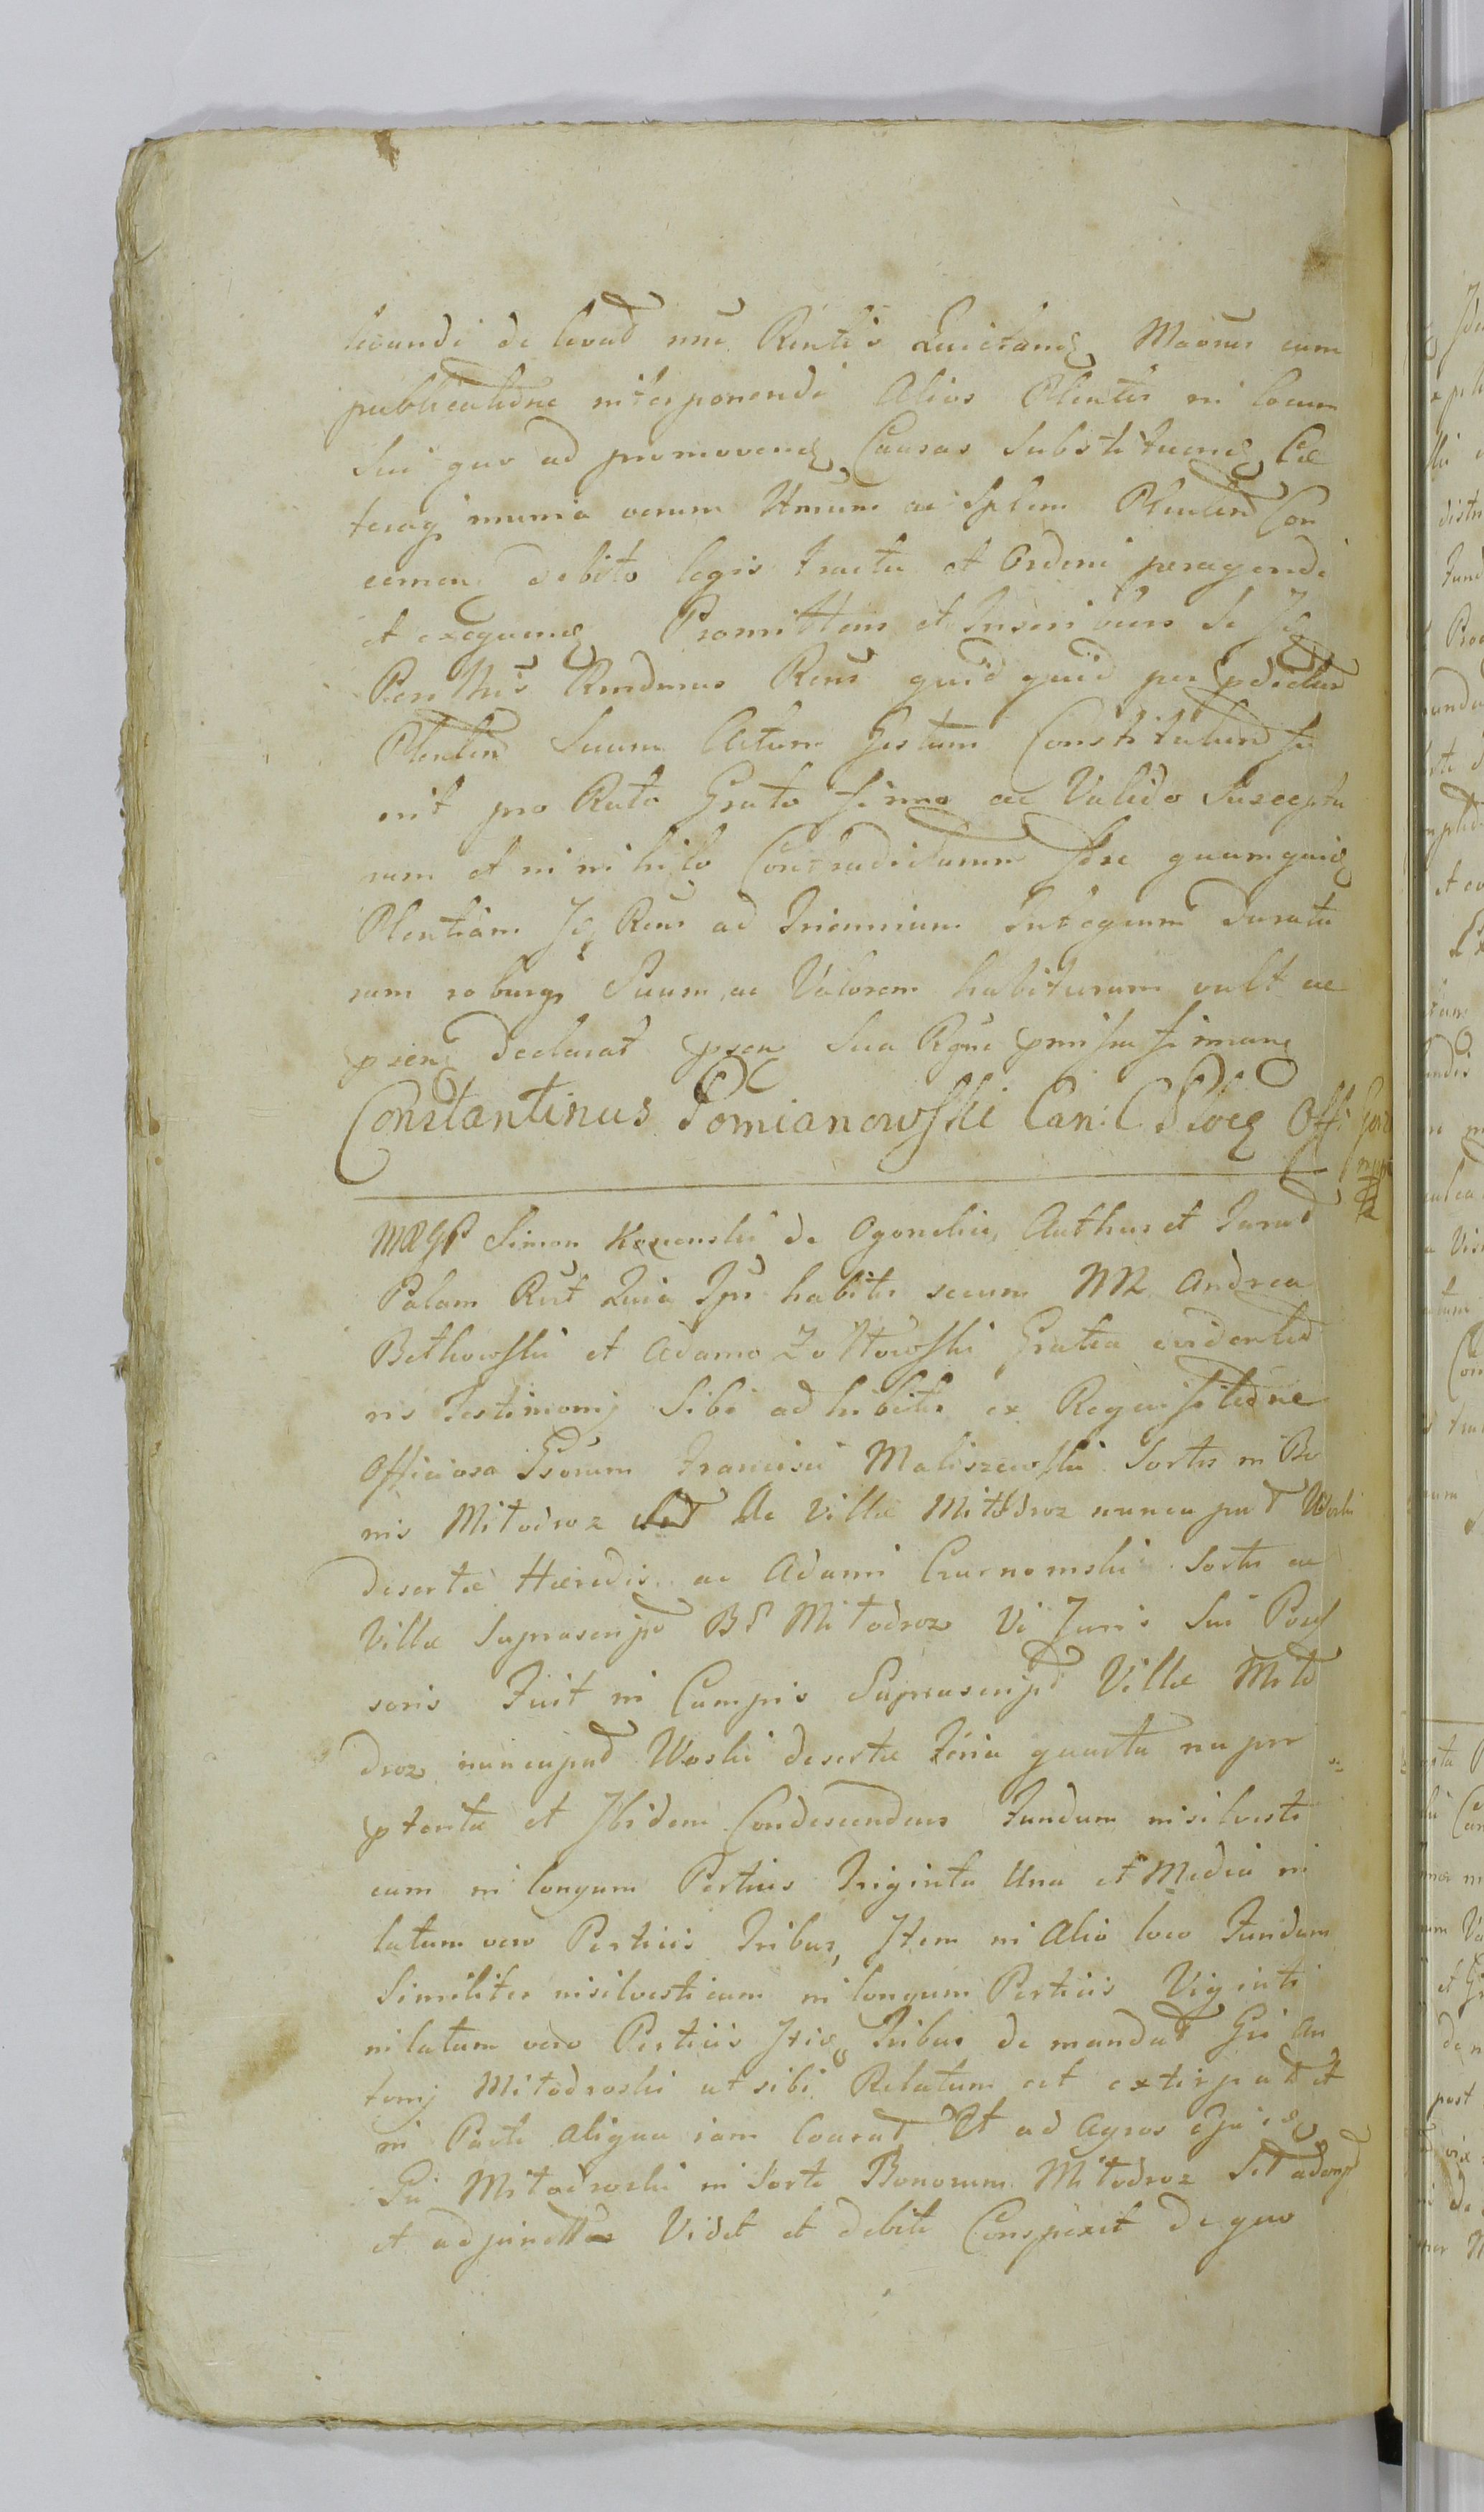 levandi de levat nne Rentis Quietand Maõnes cum
publicatione interponendi Alios Plentes in locum
Sui quo ad promovend Causas Substituend Cæ
teraq munia verum Unum ac Splem Plentend Con
cernen debito legis tractu et Ordine peragendi
et exequend Promittens et Inscribens Se Jd
Perillris Rendmus Rens quid quid per pdictum
Plentend Suum Actum Gestum Constitutum fu
erit pro Rato Grato firmo ac Valido Susceptu
rum et in nihilo Contradicturum fore quamquid
Plentiam Jd Rens ad Triennium Integrum duratu
rum roburq Suum ac Valorem habiturum vult ac
psen declarat psen Sua Rgne pmissa firman
Constantinus Pomianowski Can: C Płocq Offi
Simon Kozenski de Ogonelice Authus et Jurat
Palam Rut Quia Ips habitis secum MM Andrea
Bethowski et Adamo Zołtowski Gratia evidentio
ris Testimonij Sibi adhibitis ex Requisitione
Officiosa Gsorum Francisci Maliszewski Sortis in Bo
nis Mitodroz de Villæ Mitodroz nuncupat Woski
desertæ Hæredis ac Adami Czarnomski Sortis ac
Villæ Suprascrip BS Mitodroz Vi Juris Sui Posses
soris Fuit in Campis Suprascrip Villæ Mito
droz nuncupat Woski desertæ feria quarta nu per
pterita et Ibidem Condescendens Fundum insilvesti
cum in longum Perticis Triginta Una et Media in
latum vero Perticis Tribus, Item in Alio loco Fundum
Similiter insilvesticum in longum Perticis Viginti
in latum vero Perticis Itid Tribus de mandat Gsi An
tonij Mitodroski ut sibi Relatum est extirpat et
in Parte aliqua iam Coarat Et ad Agros ejusd
Gsi Mitodroski in Sorte Bonorum Mitodroz Sit adempt
et adjunctos Vidit et debite Conspexit de quo